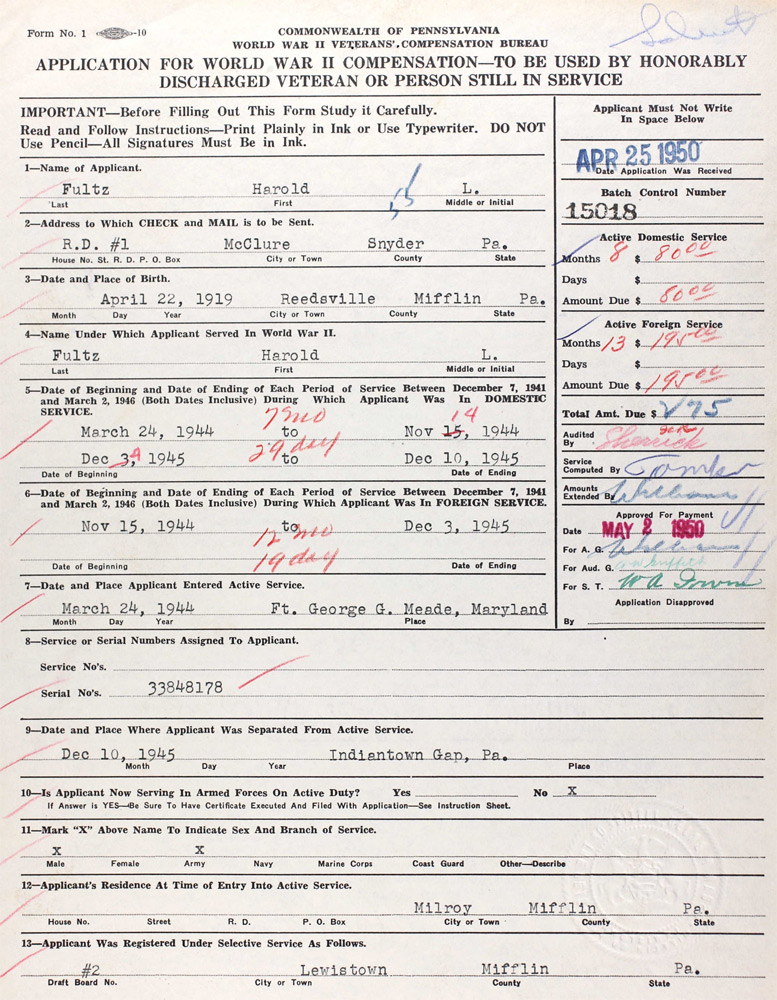 Form No. 1 -10
COMMONWEALTH OF PENNSYLVANIA
WORLD WAR II VETERANS' COMPENSATION BUREAU
APPLICATION FOR WORLD WAR II COMPENSATION—TO BE USED BY HONORABLY
DISCHARGED VETERAN OR PERSON STILL IN SERVICE
IMPORTANT—Before Filling Out This Form Study it Carefully.
Read and Follow Instructions—Print Plainly in Ink or Use Typewriter. DO NOT
Use Pencil—All Signatures Must Be in Ink.
Applicant Must Not Write
In Space Below
APR 25 1950
Date Application Was Received
Batch Control Number
15018
1—Name of Applicant.
Fultz Harold L.
Last First Middle or Initial
2—Address to Which CHECK and MAIL is to be Sent.
R.D. #1 McClure Snyder Pa.
House No. St. R. D. P. O. Box City or Town County State
Active Domestic Service
Months 8 $ 80 00
Days $
Amount Due $ 80 00
3—Date and Place of Birth.
April 22, 1919 Reedsville Mifflin Pa.
Month Day Year City or Town County State
4—Name Under Which Applicant Served In World War II.
Fultz Harold L.
Last First Middle or Initial
Active Foreign Service
Months 13 $ 195 00
Days $
Amount Due $ 195 00
Total Amt. Due $ 275
5—Date of Beginning and Date of Ending of Each Period of Service Between December 7, 1941
and March 2, 1946 (Both Dates Inclusive) During Which Applicant Was In DOMESTIC
SERVICE.
7 mo 14
March 24, 1944 to Nov 15, 1944
29 day
Dec 3, 4 1945 to Dec 10, 1945
Date of Beginning Date of Ending
Audited By Sherrick
Service
Computed By
Amounts
Extended By Williams
6—Date of Beginning and Date of Ending of Each Period of Service Between December 7, 1941
and March 2, 1946 (Both Dates Inclusive) During Which Applicant Was In FOREIGN SERVICE.
Nov 15, 1944 to Dec 3, 1945
12 mo
19 day
Date of Beginning Date of Ending
Approved For Payment
Date MAY 2 1950
For A. G. Williams
For Aud. G.
For S. T.
Application Disapproved
By
7—Date and Place Applicant Entered Active Service.
March 24, 1944 Ft. George G. Meade, Maryland
Month Day Year Place
8—Service or Serial Numbers Assigned To Applicant.
Service No's.
Serial No's. 33848178
9—Date and Place Where Applicant Was Separated From Active Service.
Dec 10, 1945 Indiantown Gap, Pa.
Month Day Year Place
10—Is Applicant Now Serving In Armed Forces On Active Duty? Yes No X
If Answer is YES—Be Sure To Have Certificate Executed And Filed With Application—See Instruction Sheet.
11—Mark "X" Above Name To Indicate Sex And Branch of Service.
X X
Male Female Army Navy Marine Corps Coast Guard Other—Describe
12—Applicant's Residence At Time of Entry Into Active Service.
Milroy Mifflin Pa.
House No. Street R. D. P. O. Box City or Town County State
13—Applicant Was Registered Under Selective Service As Follows.
#2 Lewistown Mifflin Pa.
Draft Board No. City or Town County State